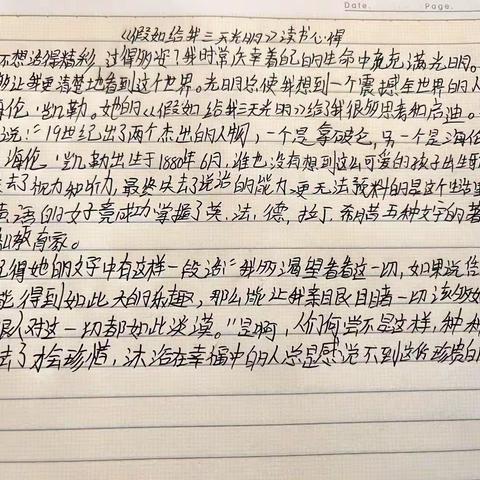 Date.
Page.
《假如给我三天光明》读书心得
不想活得精彩,过得够好?我时常庆幸着自己的生命中能充满光明。
能让我更清楚地看到这个世界。光明总使我想到一个震撼全世界的人
海伦·凯勒。她的《假如给我三天光明》给了我很多思考和启迪。
说:"19世纪出了两个杰出的人物,一个是拿破仑,另一个是海伦
海伦·凯勒出生于1880年6月,谁也没有想到这么可爱的孩子出生
失去了视力和听力,最终失去了说话的能力,更无法预料的是这个生活
英语的女子竟成功掌握了英、法、德、拉丁、希腊五种文字的著
教育家。
记得她的文字中有这样一段话:"我多么渴望看看这一切,如果说
能得到如此大的乐趣,那么能让我亲眼目睹一切该多
人对这一切却如此淡漠。"是啊,人们何尝不是这样,种种
去了才会珍惜,沐浴在幸福中的人总是感觉不到这份珍贵的